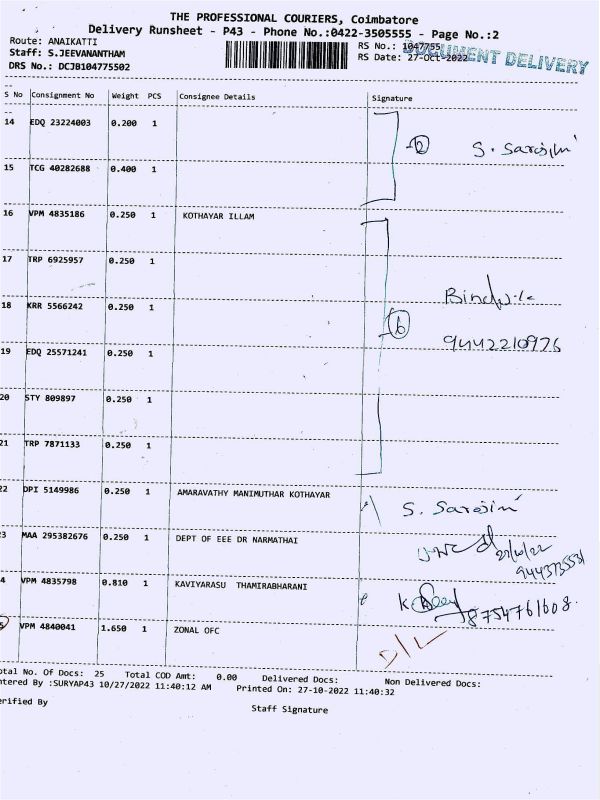 THE PROFESSIONAL COURIERS, Coimbatore
Delivery Runsheet - P43 - Phone No.:0422-3505555 - Page No.:2
Route: ANAIKATTI
Staff: S.JEEVANANTHAM
DRS No.: DCJB104775502
RS No.: 1047755
RS Date: 27-Oct-2022
DOCUMENT DELIVERY
S No Consignment No Weight PCS Consignee Details Signature
14 EDQ 23224003 0.200 1
② S. Sarojini
15 TCG 40282688 0.400 1
16 VPM 4835186 0.250 1 KOTHAYAR ILLAM
17 TRP 6925957 0.250 1
18 KRR 5566242 0.250 1
⑥
9442210976
19 EDQ 25571241 0.250 1
20 STY 809897 0.250 1
21 TRP 7871133 0.250 1
22 DPI 5149986 0.250 1 AMARAVATHY MANIMUTHAR KOTHAYAR
S. Sarojini
3 MAA 295382676 0.250 1 DEPT OF EEE DR NARMATHAI
4 VPM 4835798 0.810 1 KAVIYARASU THAMIRABHARANI
8754761608.
5 VPM 4840041 1.650 1 ZONAL OFC
D/L
otal No. Of Docs: 25 Total COD Amt: 0.00 Delivered Docs: Non Delivered Docs:
ntered By :SURYAP43 10/27/2022 11:40:12 AM Printed On: 27-10-2022 11:40:32
erified By
Staff Signature